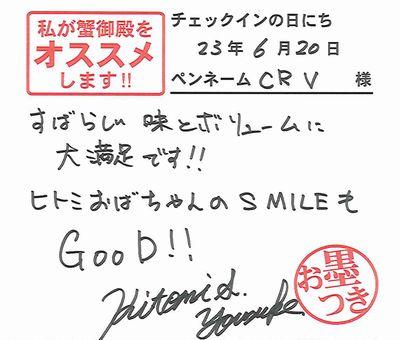 私が蟹御殿を
オススメ
します!!
チェックインの日にち
23年6月20日
ペンネーム CRV 様
すばらしい味とボリュームに
大満足です!!
ヒトミおばちゃんのSMILEも
GooD!!
Hitomi &
Yousuke
お墨つき